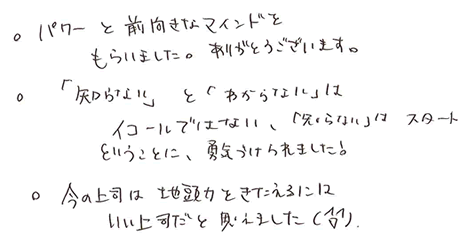 ○ パワーと前向きなマインドを
もらいました。ありがとうございます。
○ 「知らない」と「わからない」は
イコールではない、「知らない」は スタート
ということに、勇気づけられました!
○ 今の上司は 地頭力をきたえるには
いい上司だと思えました(笑).